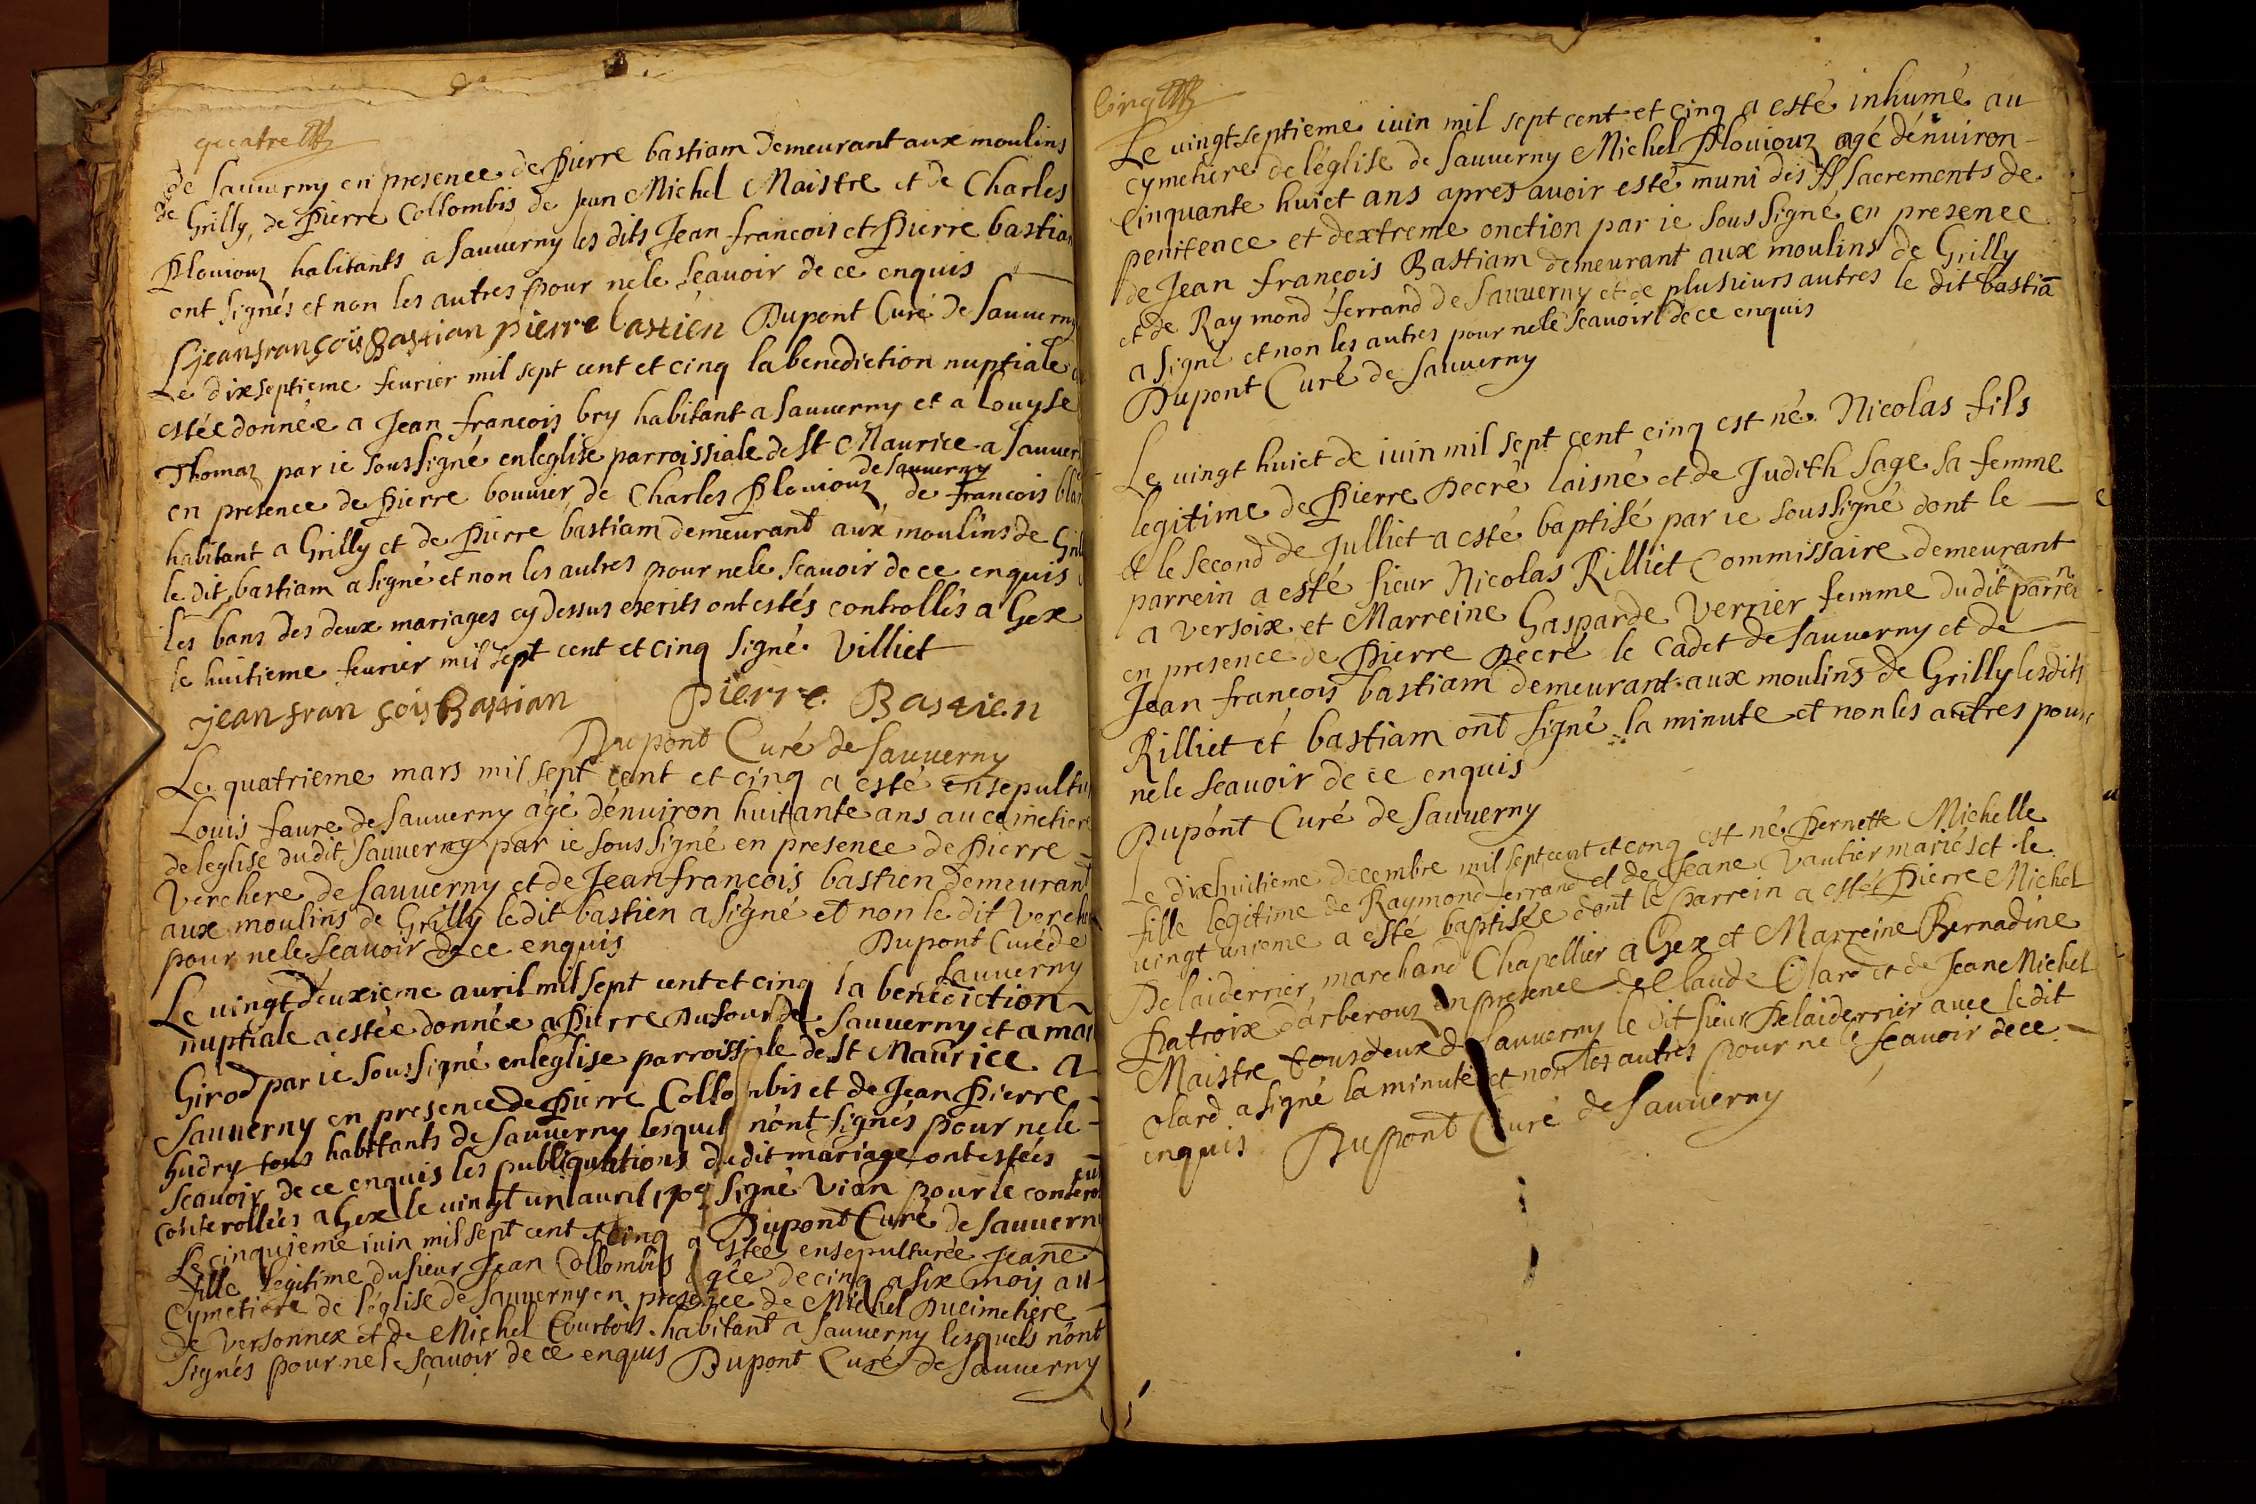 quatre
de Sauverny en presence de Pierre bastiam Demeurant aux moulins
de Grilly, de Pierre Collombis de Jean Michel Maistre et de Charles
Plouiouz habitants a Sauuerny les dits Jean francois et Pierre bastian
ont signés et non les autres pour ne le scauoir de ce enquis
jeanfrançois Bastian pierre bastien Dupont Curé De Sauuerny
Le dixseptieme feurier mil sept cent et cinq la benediction nuptiale a
estée donnée a Jean francois bry habitant a Sauuerny et a Louyse
Thomaz par ie soussigné en leglise parroissiale de St Maurice a Sauuer
de sauuerny
en presence de Pierre bouuier, de Charles Plouiouz de francois
habitant a Grilly et de Pierre bastiam demeurant aux moulins de Gril
le dit bastiam a signé et non les autres pour ne le scauoir de ce enquis
les bans des deux mariages cy dessus escrits ont estés controllés a Gex
le huitieme feurier mil sept cent et cinq signé Villiet
jean fran çois Bastian Pierre Bastien
Dupont Curé de Sauuerny
Le quatrieme mars mil sept cent et cinq a esté ensepultu
Louis faure de Sauuerny âgé dénuiron huitante ans au cemetiere
de leglise dudit Sauuerny par ie soussigné en presence de Pierre
Verchere de Sauuerny et de Jeanfrancois bastien Demeurant
aux moulins de Grilly ledit bastien a signé et non le dit Verche
pour ne le scauoir de ce enquis Dupont Curé de
Sauuerny
Le uingt deuxieme auril mil sept cent et cinq la benediction
nuptiale a estée donnée a Pierre Dufour de Sauuerny et a mar
Girod par ie soussigné en leglise parroissiale de St Maurice a
Sauuerny en presence de Pierre Collombis et de Jean Pierre
hudry tous habitants de Sauuerny lesquel n'ont signés pour ne le
scauoir de ce enquis les publiquations du dit mariage ont estées
conterollées a Gex le uingt un auril 1705 signé Vian pour le conter
Dupont Curé de Sauuerny
Le cinquieme iuin mil sept cent et cinq a estée ensepulturée Jeane
fille legitime du sieur Jean Collombis agée de cinq a six mois au
Cymetiere de léglise de Sauuerny en presence de Michel Ducimetiere
de Versonnex et de Michel Courtois habitant a Sauuerny lesquels n'ont
signés pour ne le scauoir de ce enquis Dupont Curé de Sauuerny
Cinq
Le uingt septieme iuin mil sept cent et cinq a esté inhumé au
cymetiere de léglise de Sauuerny Michel Plouiouz agé dénuiron
cinquante huict ans apres auoir esté muni des SS sacrements de
penitence et dextreme onction par ie soussigné en presence
de Jean françois Bastiam demeurant aux moulins de Grilly
et de Raymond ferrand de Sauuerny et de plusieurs autres le dit bastiā
a signé et non les autres pour ne le scauoir de ce enquis
Dupont Curé de Sauuerny
Le uingt huict de iuin mil sept cent cinq est né Nicolas fils
legitime de Pierre Decré laisné et de Judith Sage sa femme
et le second de Julliet a esté baptisé par ie soussigné dont le
parrein a esté sieur Nicolas Rilliet Commissaire demeurant
a Versoix et Marreine Gasparde Verrier femme du dit parrein
en presence de Pierre Decré le Cadet de Sauuerny et de
Jean françois bastiam demeurant aux moulins de Grilly lesdits
Rilliet et bastiam ont signé la minute et non les autres pour
ne le scauoir de ce enquis
Dupont Curé de Sauuerny
Le dixhuitieme decembre mil sept cent et cinq est né Pernette Michelle
fille legitime de Raymond ferrand et de Jeane Vautier mariés et le
uingt unieme a esté baptisée dont le parrein a esté Pierre Michel
Delaiderrier marchand Chapellier a Gex et Marreine Bernadine
Patroix dárberouz en presence de Claude Olard et de Jeane Michel
Maistre tous deux de Sauuerny le dit sieur Delaiderrier auec le dit
Olard a signé la minute et non les autres pour ne le scauoir de ce
enquis Dupont Curé de Sauuerny